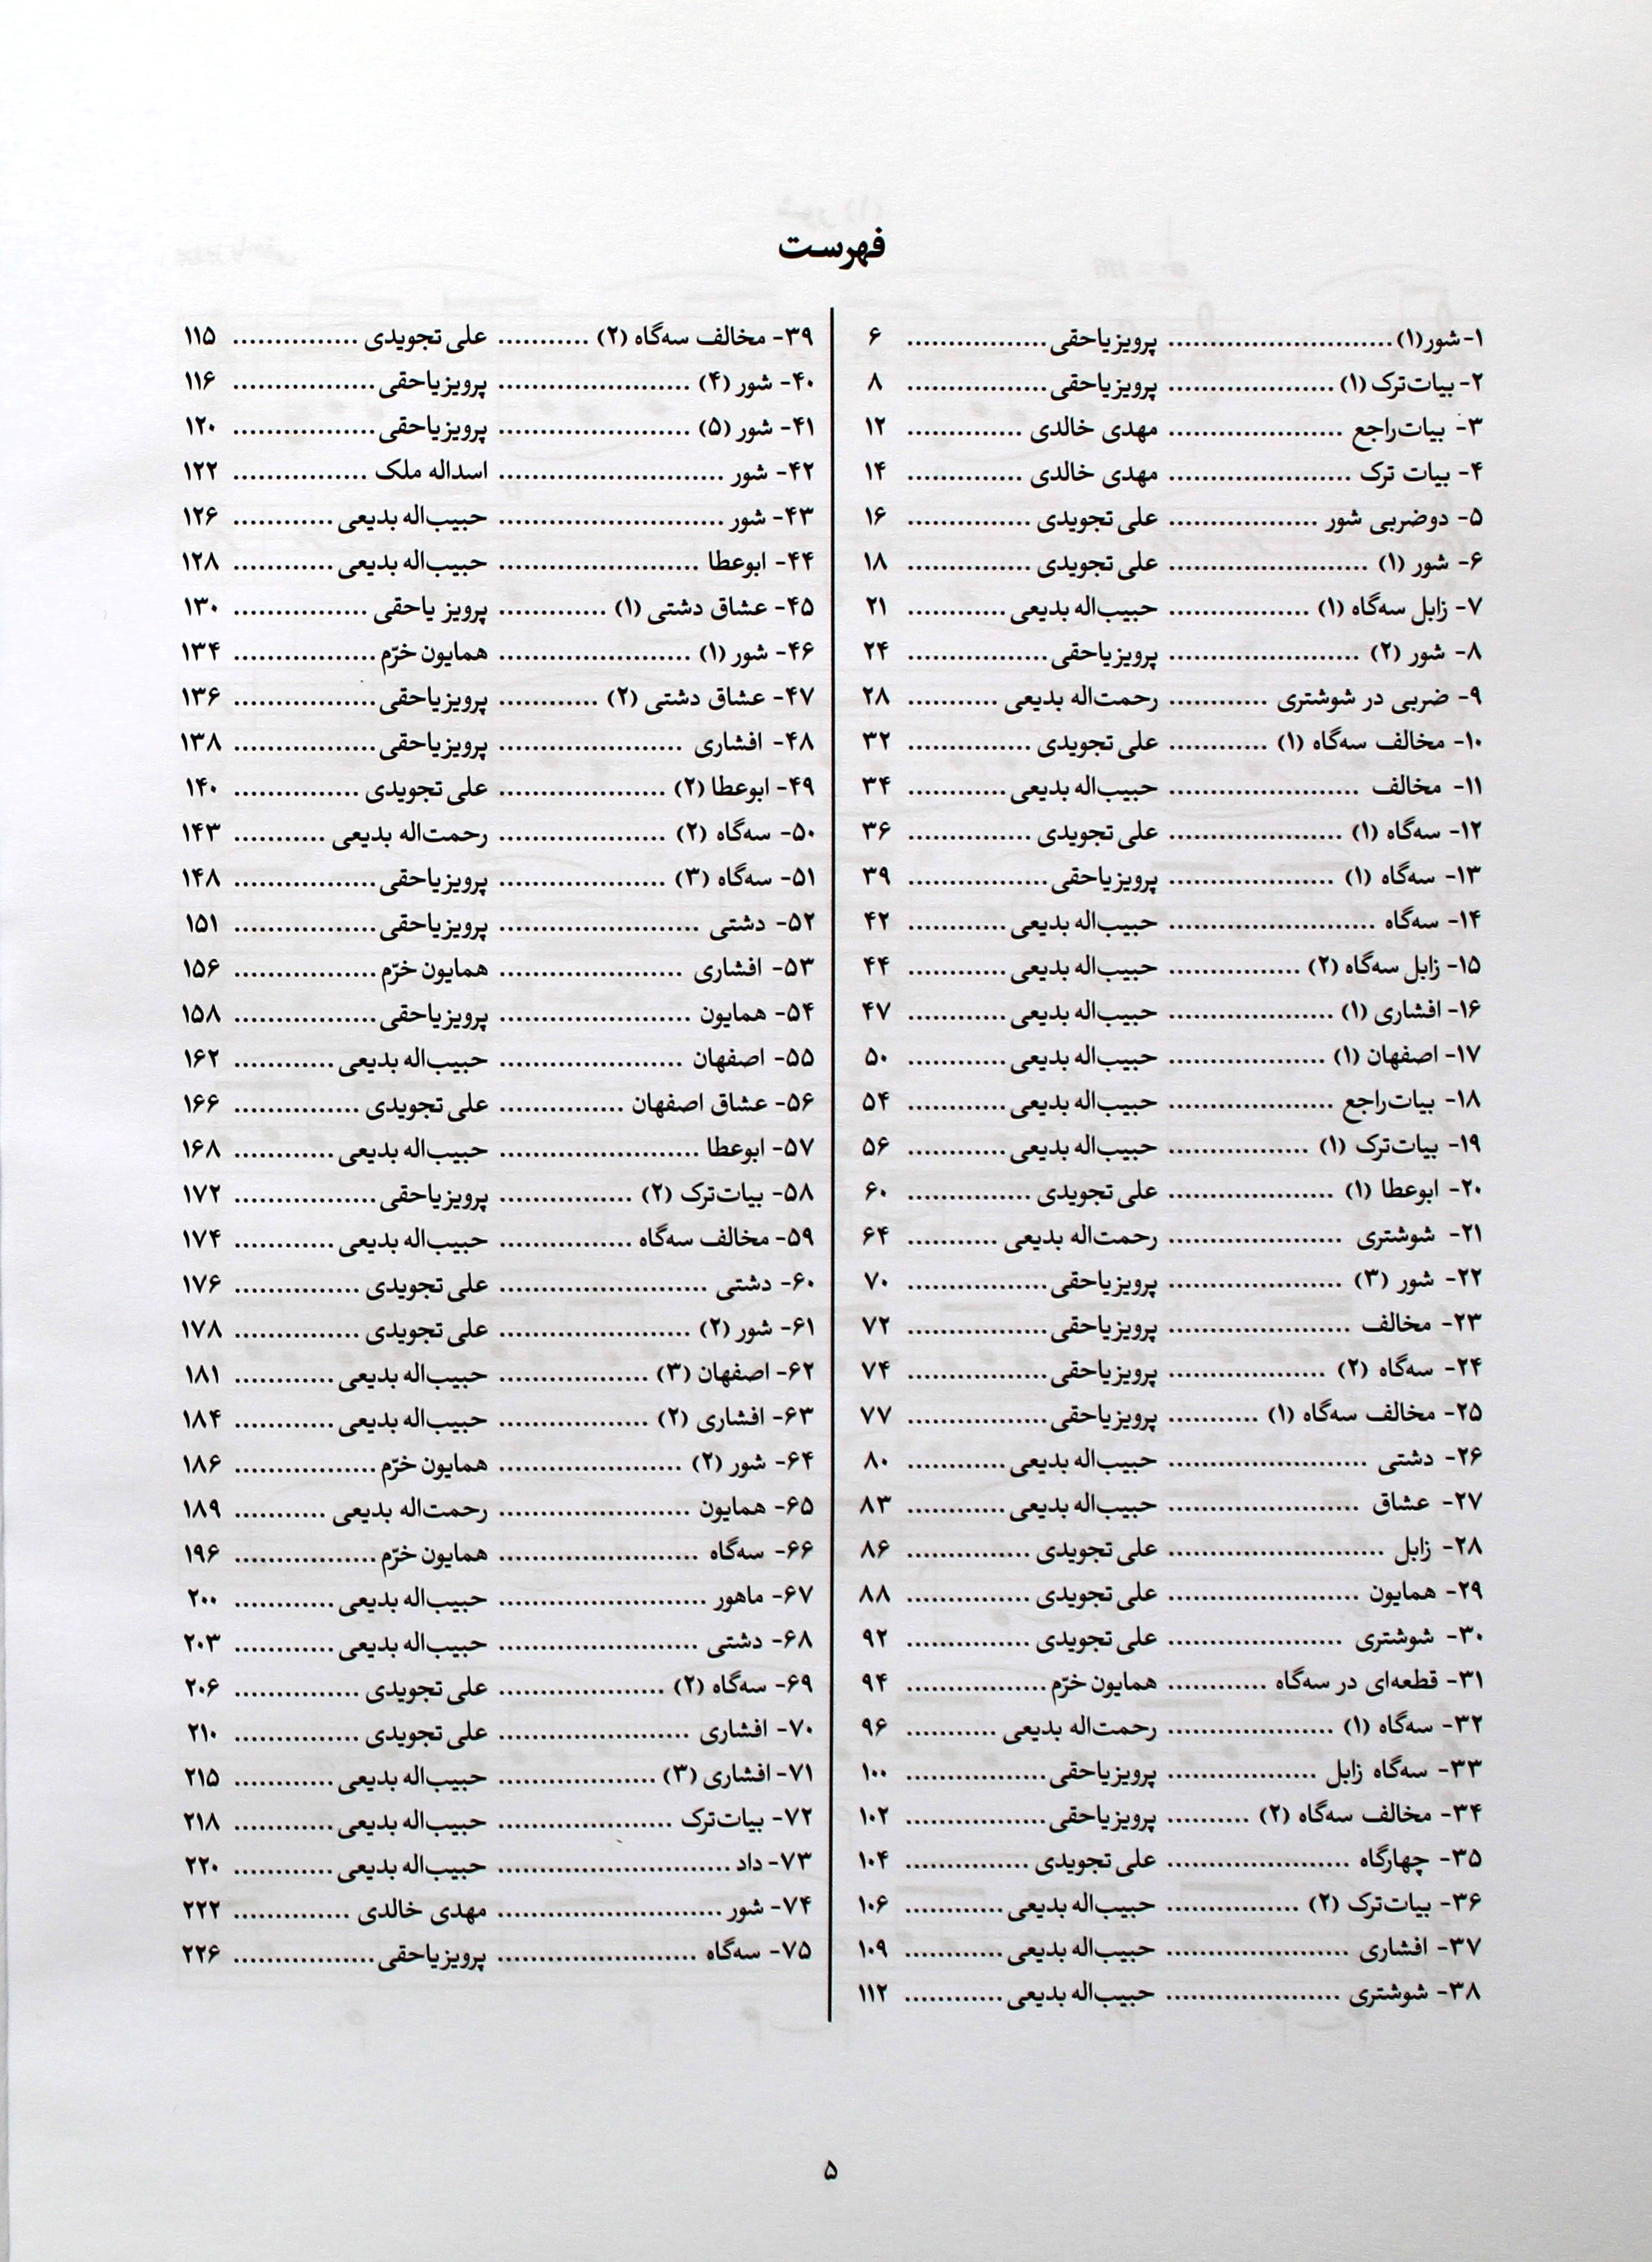 فهرست
۱- شور(۱) ............................ پرویزیاحقی ................. ۶
۲- بیات‌ترک (۱) ..................... پرویزیاحقی ................. ۸
۳- بیات‌راجع ...................... مهدی خالدی .............. ۱۲
۴- بیات ترک ....................... مهدی خالدی .............. ۱۴
۵- دوضربی شور ................... علی تجویدی ............... ۱۶
۶- شور (۱) ......................... علی تجویدی ............... ۱۸
۷- زابل سه‌گاه (۱) .................. حبیب‌اله بدیعی ............ ۲۱
۸- شور (۲) ........................ پرویزیاحقی ................. ۲۴
۹- ضربی در شوشتری ............ رحمت‌اله بدیعی ........... ۲۸
۱۰- مخالف سه‌گاه (۱) ............ علی تجویدی ............... ۳۲
۱۱- مخالف ........................ حبیب‌اله بدیعی ............ ۳۴
۱۲- سه‌گاه (۱) ...................... علی تجویدی ............... ۳۶
۱۳- سه‌گاه (۱) ..................... پرویزیاحقی ................. ۳۹
۱۴- سه‌گاه .......................... حبیب‌اله بدیعی ............ ۴۲
۱۵- زابل سه‌گاه (۲) ................. حبیب‌اله بدیعی ............ ۴۴
۱۶- افشاری (۱) ..................... حبیب‌اله بدیعی ............ ۴۷
۱۷- اصفهان (۱) .................... حبیب‌اله بدیعی ............ ۵۰
۱۸- بیات‌راجع ..................... حبیب‌اله بدیعی ............ ۵۴
۱۹- بیات‌ترک (۱) .................. حبیب‌اله بدیعی ............ ۵۶
۲۰- ابوعطا (۱) ..................... علی تجویدی ............... ۶۰
۲۱- شوشتری ...................... رحمت‌اله بدیعی ........... ۶۴
۲۲- شور (۳) ...................... پرویزیاحقی ................. ۷۰
۲۳- مخالف ....................... پرویزیاحقی ................. ۷۲
۲۴- سه‌گاه (۲) .................... پرویزیاحقی ................. ۷۴
۲۵- مخالف سه‌گاه (۱) ........... پرویزیاحقی ................. ۷۷
۲۶- دشتی ......................... حبیب‌اله بدیعی ............ ۸۰
۲۷- عشاق ........................ حبیب‌اله بدیعی ............ ۸۳
۲۸- زابل ........................... علی تجویدی ............... ۸۶
۲۹- همایون ........................ علی تجویدی ............... ۸۸
۳۰- شوشتری ...................... علی تجویدی ............... ۹۲
۳۱- قطعه‌ای در سه‌گاه ............ همایون خرّم ................. ۹۴
۳۲- سه‌گاه (۱) ..................... رحمت‌اله بدیعی ........... ۹۶
۳۳- سه‌گاه زابل ................... پرویزیاحقی ................. ۱۰۰
۳۴- مخالف سه‌گاه (۲) .......... پرویزیاحقی ................. ۱۰۲
۳۵- چهارگاه ....................... علی تجویدی ............... ۱۰۴
۳۶- بیات‌ترک (۲) ................. حبیب‌اله بدیعی ............ ۱۰۶
۳۷- افشاری ....................... حبیب‌اله بدیعی ............ ۱۰۹
۳۸- شوشتری ...................... حبیب‌اله بدیعی ............ ۱۱۲
۳۹- مخالف سه‌گاه (۲) ........... علی تجویدی ............... ۱۱۵
۴۰- شور (۴) ........................ پرویزیاحقی ................. ۱۱۶
۴۱- شور (۵) ........................ پرویزیاحقی ................. ۱۲۰
۴۲- شور ............................ اسداله ملک ................. ۱۲۲
۴۳- شور ............................ حبیب‌اله بدیعی ............ ۱۲۶
۴۴- ابوعطا ......................... حبیب‌اله بدیعی ............ ۱۲۸
۴۵- عشاق دشتی (۱) ............. پرویز یاحقی ................. ۱۳۰
۴۶- شور (۱) ........................ همایون خرّم ................. ۱۳۴
۴۷- عشاق دشتی (۲) ............ پرویزیاحقی ................. ۱۳۶
۴۸- افشاری ....................... پرویزیاحقی ................. ۱۳۸
۴۹- ابوعطا (۲) ..................... علی تجویدی ............... ۱۴۰
۵۰- سه‌گاه (۲) ..................... رحمت‌اله بدیعی ........... ۱۴۳
۵۱- سه‌گاه (۳) ..................... پرویزیاحقی ................. ۱۴۸
۵۲- دشتی ......................... پرویزیاحقی ................. ۱۵۱
۵۳- افشاری ....................... همایون خرّم ................. ۱۵۶
۵۴- همایون ........................ پرویزیاحقی ................. ۱۵۸
۵۵- اصفهان ....................... حبیب‌اله بدیعی ............ ۱۶۲
۵۶- عشاق اصفهان ................ علی تجویدی ............... ۱۶۶
۵۷- ابوعطا ......................... حبیب‌اله بدیعی ............ ۱۶۸
۵۸- بیات‌ترک (۲) ................. پرویزیاحقی ................. ۱۷۲
۵۹- مخالف سه‌گاه ................. حبیب‌اله بدیعی ............ ۱۷۴
۶۰- دشتی .......................... علی تجویدی ............... ۱۷۶
۶۱- شور (۲) ........................ علی تجویدی ............... ۱۷۸
۶۲- اصفهان (۳) ................... حبیب‌اله بدیعی ............ ۱۸۱
۶۳- افشاری (۲) ................... حبیب‌اله بدیعی ............ ۱۸۴
۶۴- شور (۲) ....................... همایون خرّم ................. ۱۸۶
۶۵- همایون ........................ رحمت‌اله بدیعی ........... ۱۸۹
۶۶- سه‌گاه ......................... همایون خرّم ................. ۱۹۶
۶۷- ماهور .......................... حبیب‌اله بدیعی ............ ۲۰۰
۶۸- دشتی ......................... حبیب‌اله بدیعی ............ ۲۰۳
۶۹- سه‌گاه (۲) ..................... علی تجویدی ............... ۲۰۶
۷۰- افشاری ........................ علی تجویدی ............... ۲۱۰
۷۱- افشاری (۳) .................... حبیب‌اله بدیعی ............ ۲۱۵
۷۲- بیات‌ترک ...................... حبیب‌اله بدیعی ............ ۲۱۸
۷۳- داد ............................. حبیب‌اله بدیعی ............ ۲۲۰
۷۴- شور ............................ مهدی خالدی .............. ۲۲۲
۷۵- سه‌گاه ......................... پرویزیاحقی ................. ۲۲۶
۵